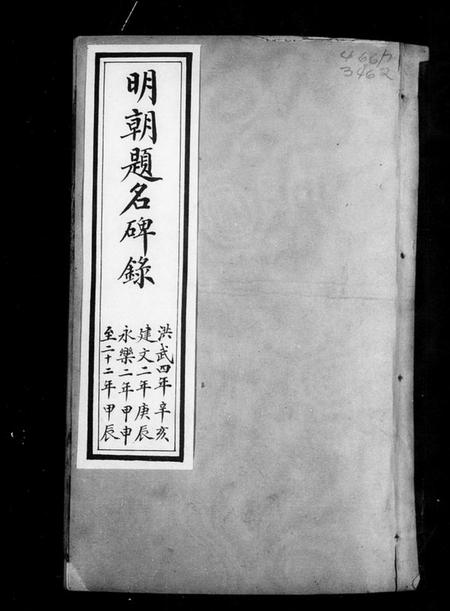 明朝題名碑錄
洪武四年辛亥
建文二年庚辰
永樂二年甲申
至二十二年甲辰
466/7
3462